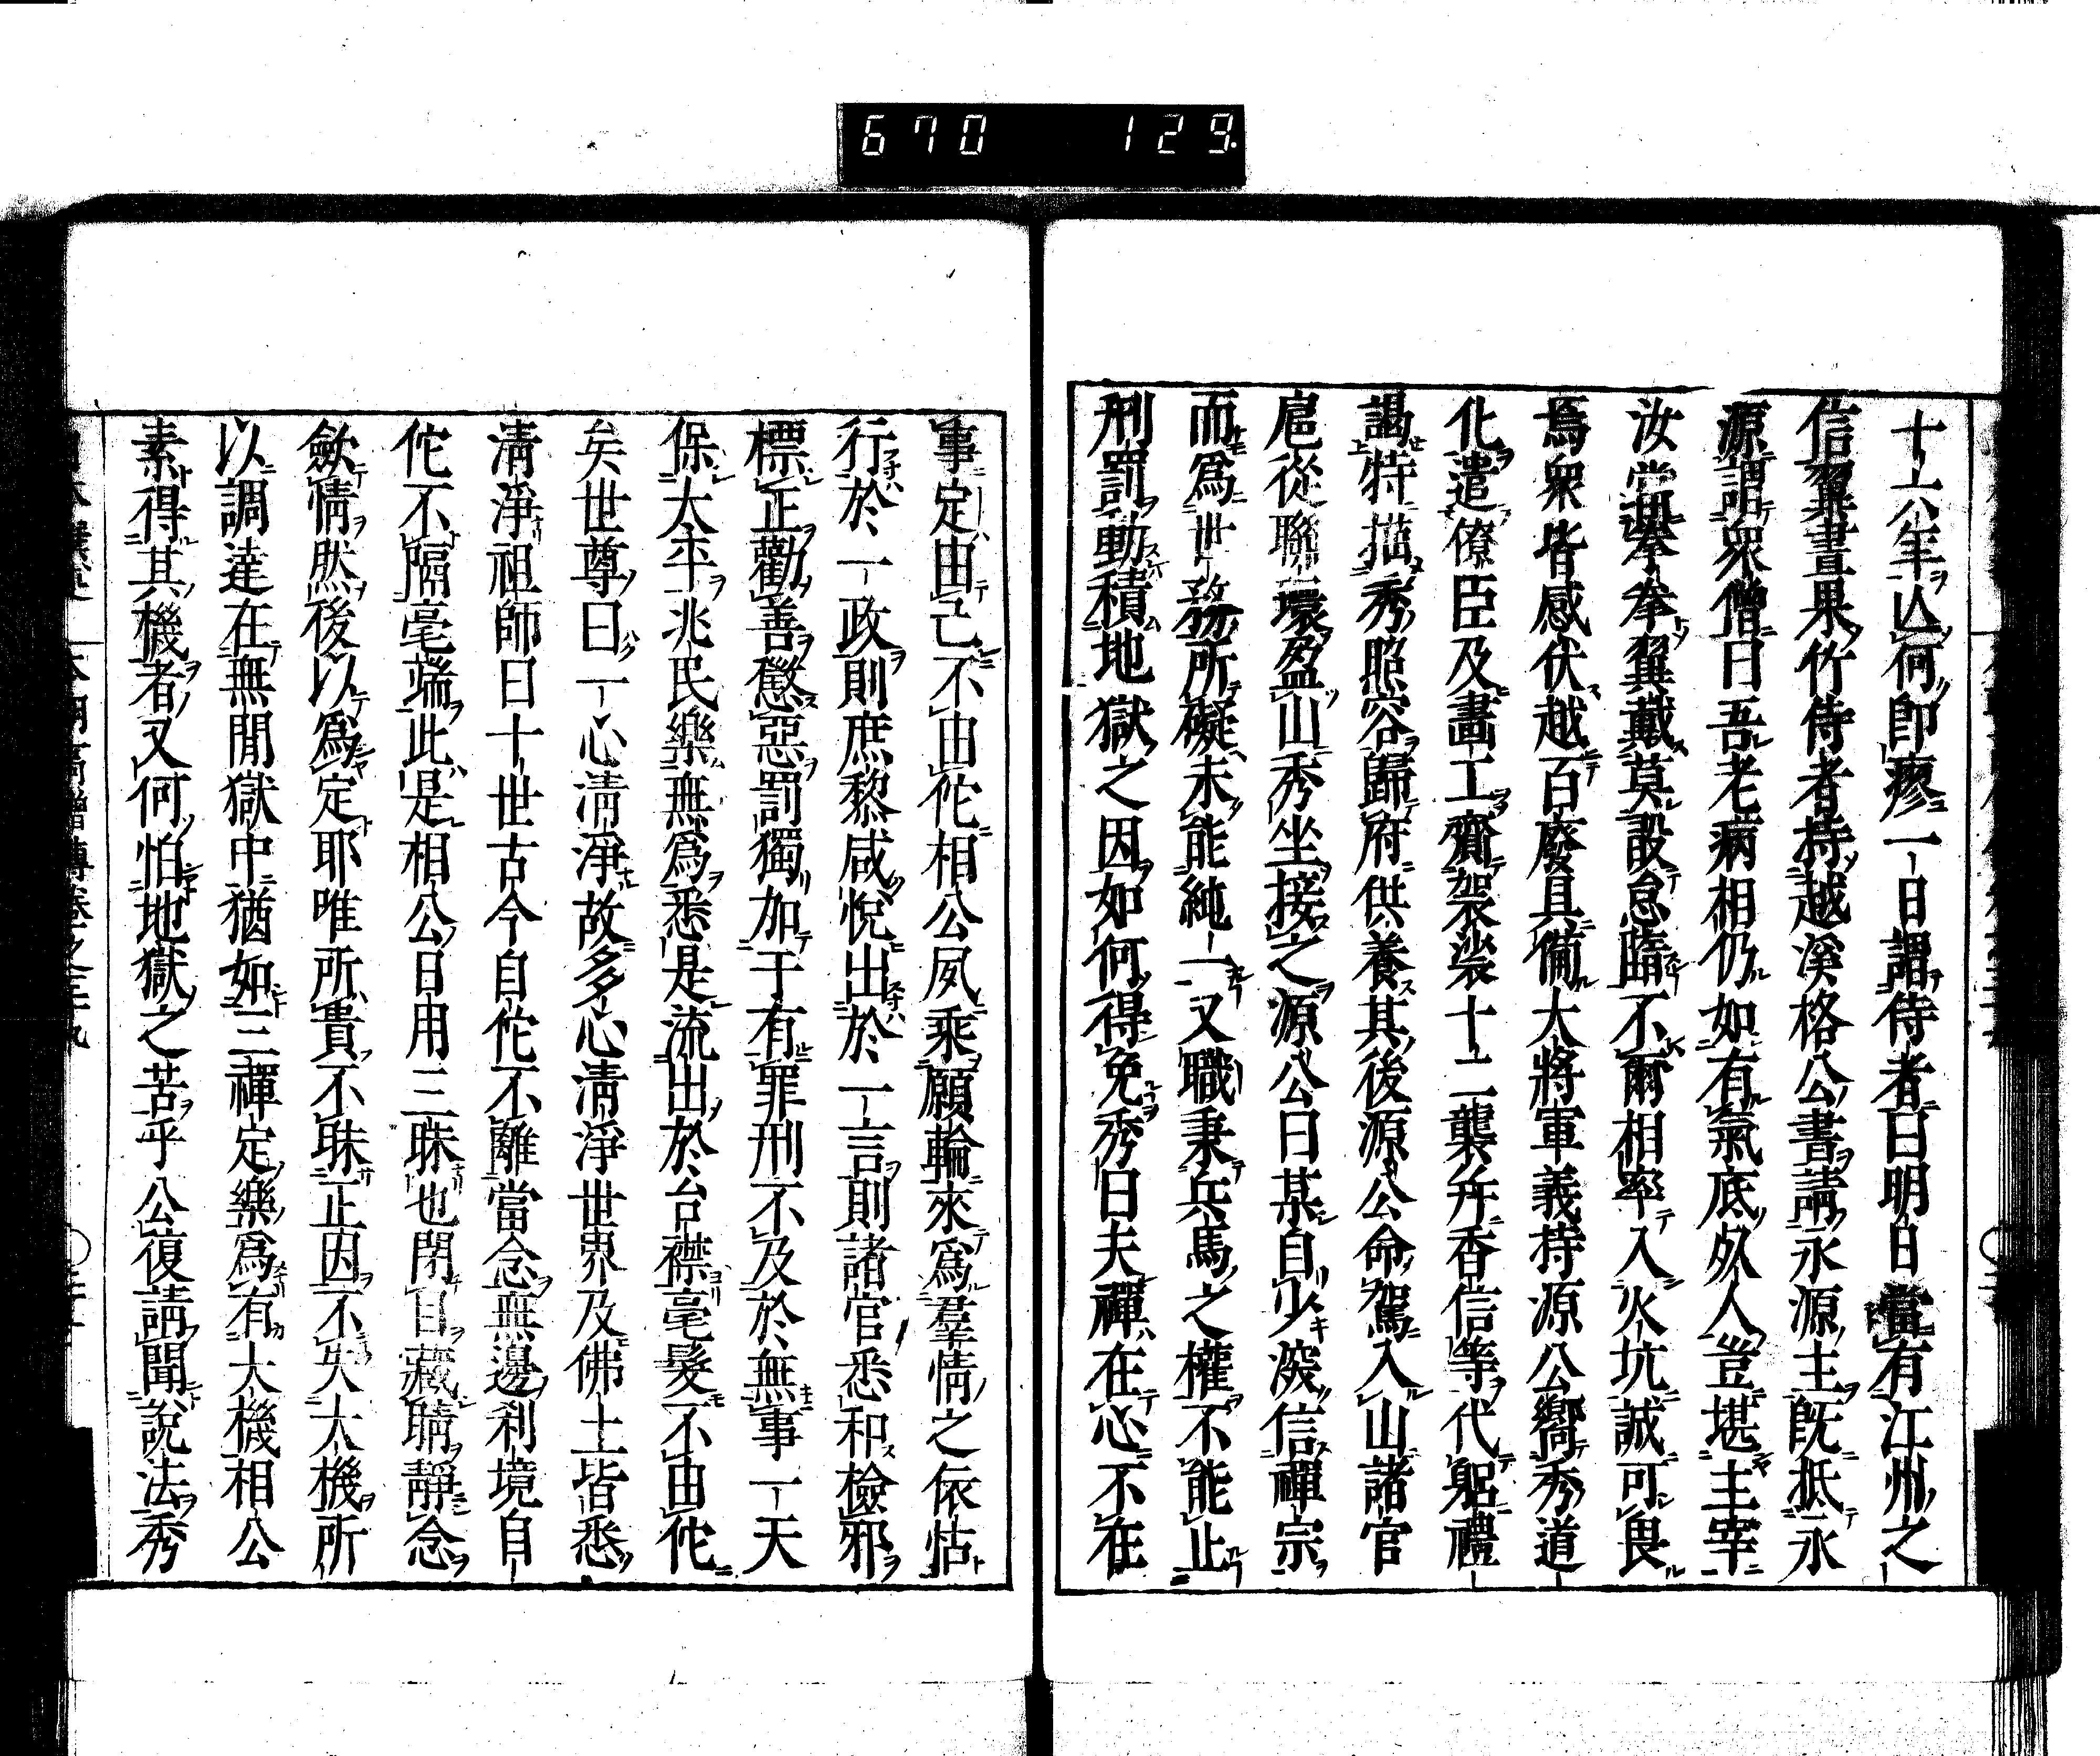 670 129
十八年込何卽瘳一日謂侍者曰明日當有江州之
信翼晝果竹侍者持越溪格公書請永源主旣抵永
源謂衆僧曰吾老病相仍如有氣底死人豈堪主宰
汝當拳拳翼戴莫設怠隳不爾相率入火坑誠可畏
焉衆皆感伏越百廢具備大將軍義持源公嚮秀道
化遣僚臣及畫工齎袈裟十二襲幷香信等代躬禮
謁特描秀照容歸府供養其後源公命駕入山諸官
扈從聯環盈山秀坐接之源公曰某自少深信禪宗
而爲世務所礙未能純一又職秉兵馬之權不能止
刑罰動積地獄之因如何得免秀曰夫禪在心不在
事定由己不由佗相公夙乘願輪來爲羣情之依怙
行於一政則庶黎咸悅出於一言則諸官悉和檢邪
標正勸善懲惡罰獨加于有罪刑不及於無事一天
保大平兆民樂無爲悉是流出於台襟毫髮不由佗
矣世尊曰一心淸淨故多心淸淨世界及佛土皆悉
淸淨祖師曰十世古今自佗不離當念無邊刹境自
佗不隔毫端此是相公日用三昧也閉目藏睛靜念
斂情然後以爲定耶唯所貴不昧正因不失大機所
以調達在無間獄中猶如三禪定樂爲有大機相公
素得其機者又何怕地獄之苦乎公復請聞說法秀